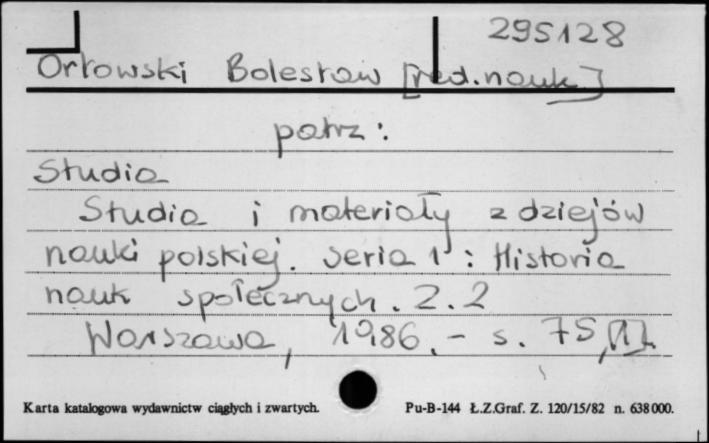 295128
Orłowski Bolesław [red.nauk]
patrz:
Studia
Studia i materiały z dziejów
nauki polskiej. Seria 1 : Historia
nauk społecznych. Z. 2
Warszawa, 1986. - s. 75, [1].
Karta katalogowa wydawnictw ciągłych i zwartych. Pu-B-144 Ł.Z.Graf. Z. 120/15/82 n. 638000.